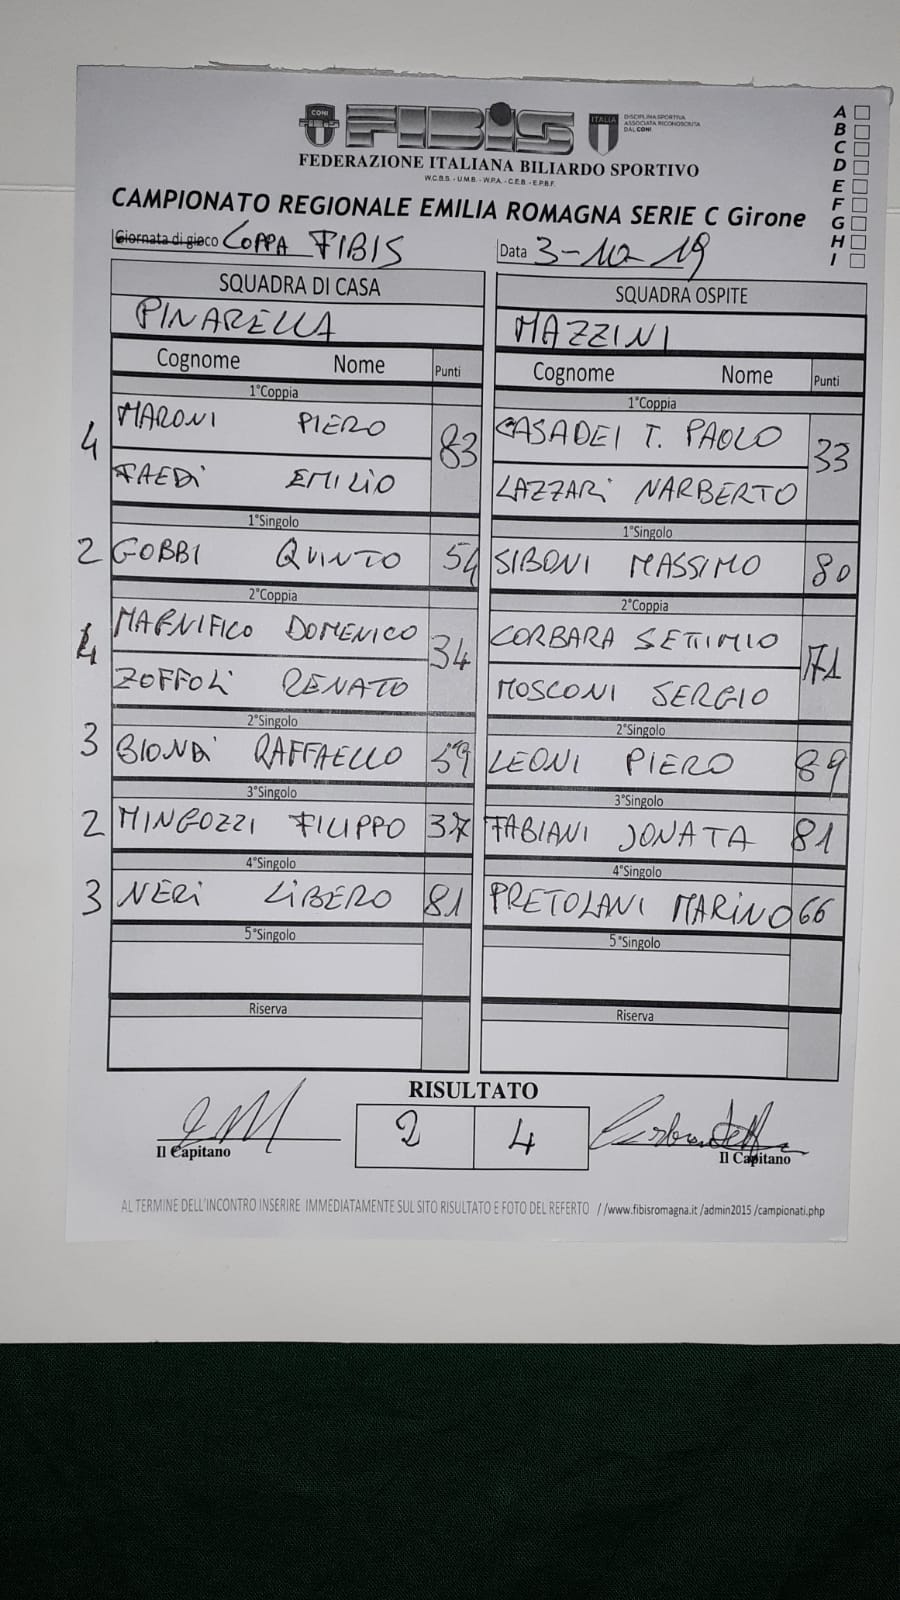 CONI
FIBIS
ITALIA
DISCIPLINA SPORTIVA
ASSOCIATA RICONOSCIUTA
DAL CONI
FEDERAZIONE ITALIANA BILIARDO SPORTIVO
W.C.B.S. - U.M.B. - W.P.A. - C.E.B. - E.P.B.F.
A
B
C
D
E
F
G
H
I
CAMPIONATO REGIONALE EMILIA ROMAGNA SERIE C Girone
Giornata di gioco COPPA FIBIS
Data 3-10-19
SQUADRA DI CASA
PINARELLA
Cognome Nome Punti
1°Coppia
4 MARONI PIERO 83
FAEDI EMILIO
1°Singolo
2 GOBBI QUINTO 54
2°Coppia
4 MAGNIFICO DOMENICO 34
ZOFFOLI RENATO
2°Singolo
3 BIONDI RAFFAELLO 59
3°Singolo
2 MINGOZZI FILIPPO 37
4°Singolo
3 NERI LIBERO 81
5°Singolo
Riserva
SQUADRA OSPITE
MAZZINI
Cognome Nome Punti
1°Coppia
CASADEI T. PAOLO 33
LAZZARI NARBERTO
1°Singolo
SIBONI MASSIMO 80
2°Coppia
CORBARA SETTIMIO 71
MOSCONI SERGIO
2°Singolo
LEONI PIERO 89
3°Singolo
FABIANI JONATA 81
4°Singolo
PRETOLANI MARINO 66
5°Singolo
Riserva
RISULTATO
2 4
Il Capitano
Il Capitano
AL TERMINE DELL'INCONTRO INSERIRE IMMEDIATAMENTE SUL SITO RISULTATO E FOTO DEL REFERTO //www.fibisromagna.it /admin2015 /campionati.php